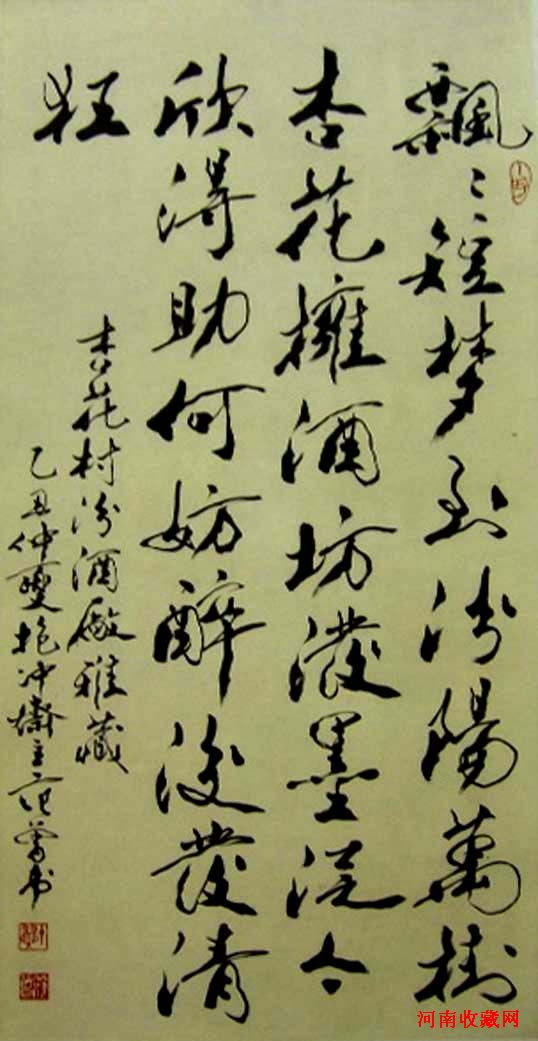 飄〻短梦到汾陽萬樹
杏花擁酒坊潑墨從今
欣得助何妨醉後發清
狂
杏花村汾酒廠雅藏
乙丑仲夏抱冲齋主范曾书
河南收藏网